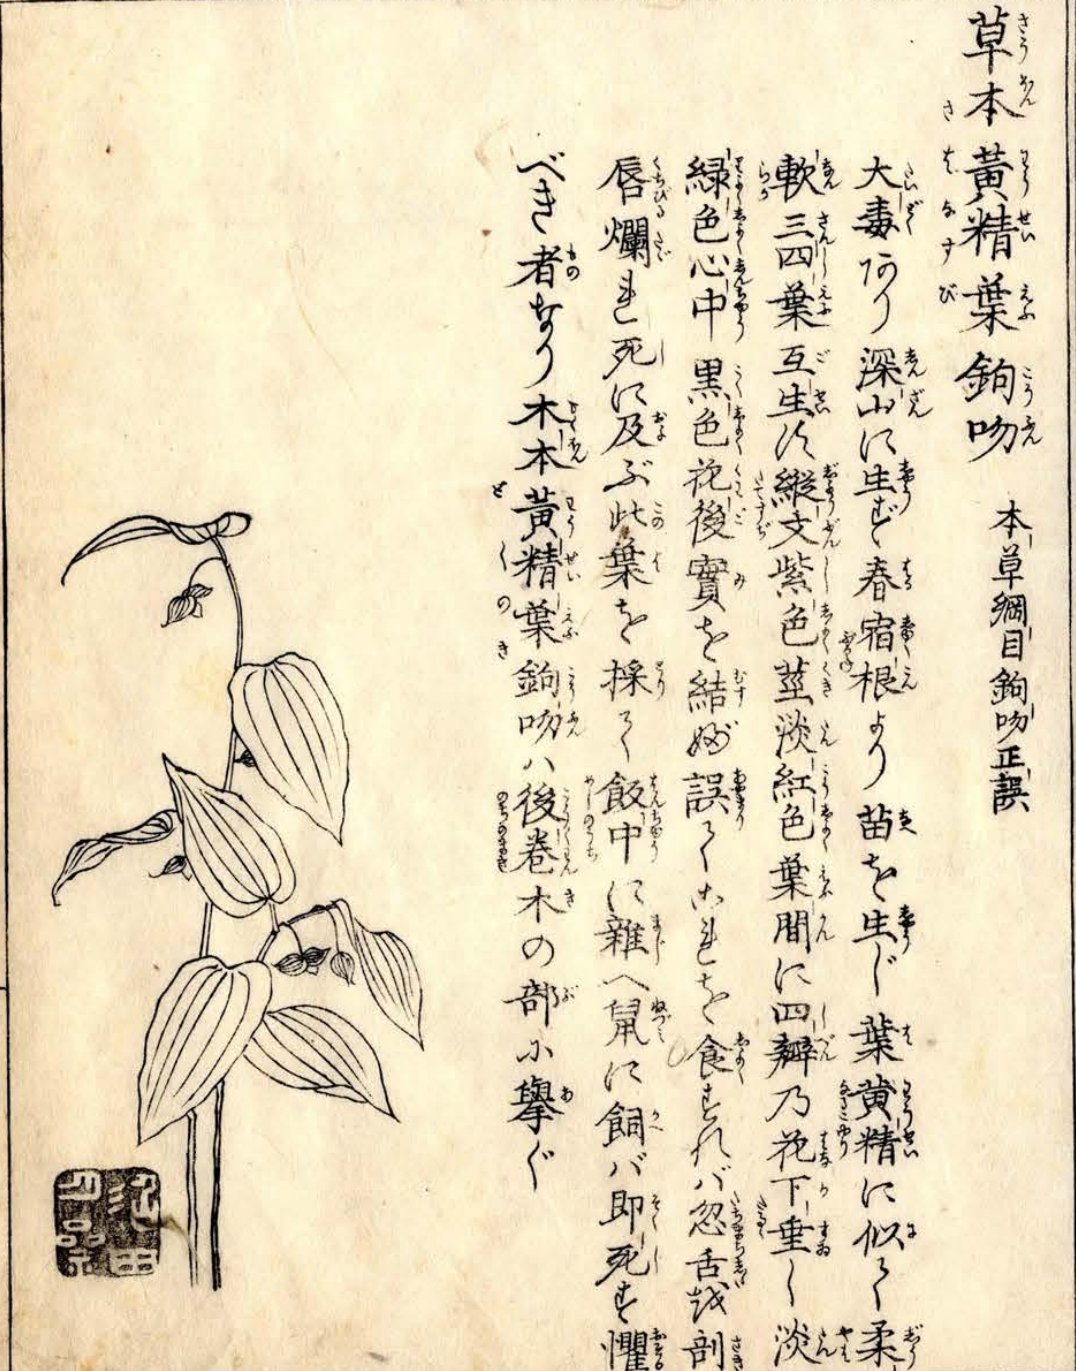 草本黃精葉鉤吻 本草綱目鉤吻正誤
大毒あり深山に生ず春宿根より苗を生じ葉黄精に似て柔
軟三四葉互生す縦文紫色茎淡紅色葉間に四瓣乃花下垂し淡
緑色心中黒色花後實を結ぶ誤てこれを食すれバ忽舌を剖
唇爛れ死に及ぶ此葉を採て飯中に雜へ鼠に飼バ即死す懼
べき者なり木本黃精葉鉤吻ハ後巻木の部に擧ぐ